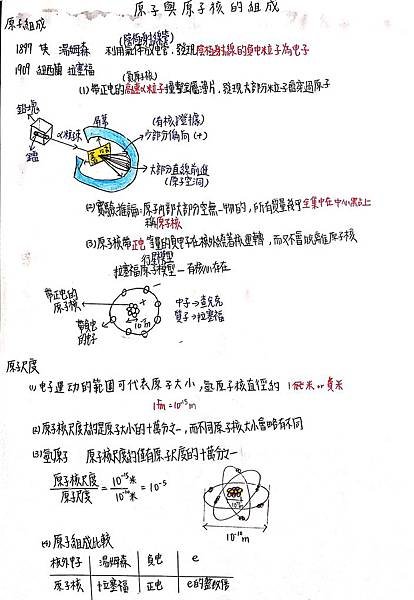 原子與原子核的組成
原子組成
(陰極射線管)
1897 英 湯姆森 利用氣體放電管，發現陰極射線的負電粒子為電子
1909 紐西蘭 拉塞福
(氦原子核)
(1) 帶正電的高速α粒子撞擊金屬薄片，發現大部分粒子直穿過原子
鉛塊
α粒子
屏幕
(有核證據)
少部分偏向 (+)
金箔
大部分直線前進
(原子空洞)
(2) 實驗推論：原子內部大部分空無一物的，所有質量幾乎全集中在中心點上
稱原子核
(3) 原子核帶正電，等量的負電子在核外繞著核運轉，而又不會放離原子核
行星模型
拉塞福原子模型－有核心存在
帶正電的
原子核
中子→查兌克
質子→拉塞福
帶負電
的電子
原子尺度
(1) 電子運動的範圍可代表原子大小，氫原子核直徑約 1 飛米 or 費米
1fm=10⁻¹⁵m
(2) 原子核尺度大約是原子大小的十萬分之一，而不同原子核大小會略有不同
(3) 氫原子 原子核尺度約僅有原子尺度的十萬分之一
原子核尺度/原子尺度 = 10⁻¹⁵米/10⁻¹⁰米 = 10⁻⁵
10⁻¹⁰m
(4) 原子組成比較
核外電子 湯姆森 負電 e
原子核 拉塞福 正電 e的整數倍